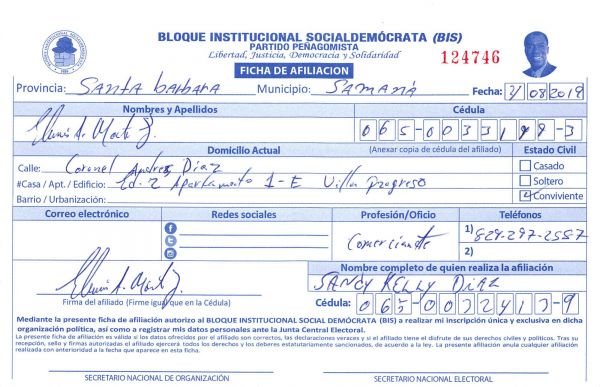 BLOQUE INSTITUCIONAL SOCIALDEMÓCRATA (BIS)
PARTIDO PEÑAGOMISTA
Libertad, Justicia, Democracia y Solidaridad
124746
FICHA DE AFILIACION
Provincia: Santa barbara Municipio: SAMANÁ Fecha: 2/08/2019
Nombres y Apellidos Cédula
065-0033199-3
Domicilio Actual (Anexar copia de cédula del afiliado) Estado Civil
Calle: Coronel Andres Diaz Casado
#Casa / Apt. / Edificio: Ed. 2 Apartamento 1-E Villa Progreso Soltero
Barrio / Urbanización: Conviviente
Correo electrónico Redes sociales Profesión/Oficio Teléfonos
Comerciante 1) 829-297-2557
2)
Nombre completo de quien realiza la afiliación
SANDY KELLY DIAZ
Firma del afiliado (Firme igual que en la Cédula) Cédula: 065-0032413-9
Mediante la presente ficha de afiliación autorizo al BLOQUE INSTITUCIONAL SOCIAL DEMÓCRATA (BIS) a realizar mi inscripción única y exclusiva en dicha
organización política, así como a registrar mis datos personales ante la Junta Central Electoral.
La presente ficha de afiliación es válida si los datos ofrecidos por el afiliado son correctos, las declaraciones veraces y si el afiliado tiene el disfrute de sus derechos civiles y políticos. Tras su
recepción, sello y firmas autorizadas el afiliado ejercerá todos los derechos y los deberes estatutariamente sancionados, de acuerdo a la ley. La presente afiliación anula cualquier afiliación
realizada con anterioridad a la fecha que aparece en esta ficha.
SECRETARIO NACIONAL DE ORGANIZACIÓN SECRETARIO NACIONAL ELECTORAL